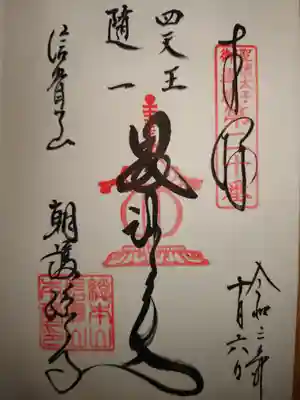 奉拝
令和二年
十月六日
四天王
隨一
毘沙門天
信貴山
朝護孫子寺